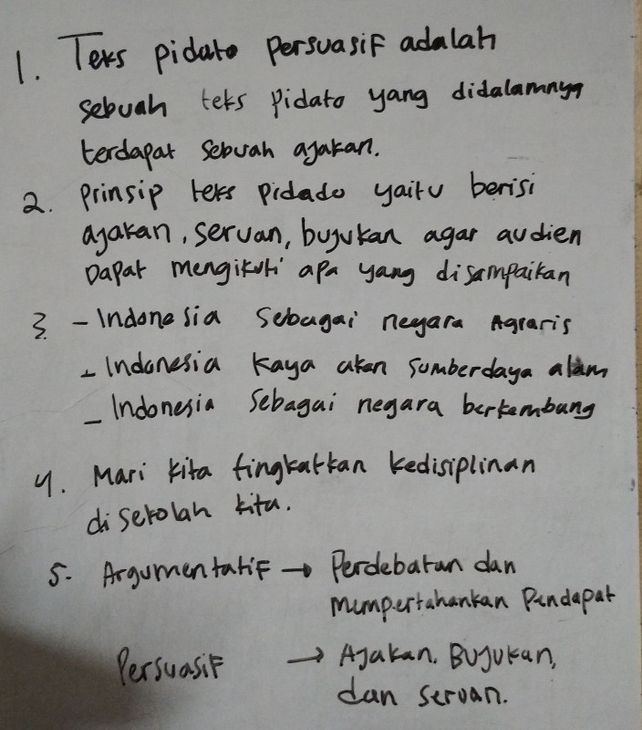 1. Teks pidato persuasif adalah
sebuah teks pidato yang didalamnya
terdapat sebuah ajakan.
2. Prinsip teks pidado yaitu berisi
ajakan, seruan, bujukan agar audien
Dapat mengikuti apa yang disampaikan
3. - Indonesia sebagai negara Agraris
- Indonesia kaya akan sumberdaya alam
- Indonesia sebagai negara berkembang
4. Mari kita tingkatkan kedisiplinan
di sekolah kita.
5. Argumentatif → Perdebatan dan
mempertahankan Pendapat
Persuasif → Ajakan, Bujukan,
dan seruan.